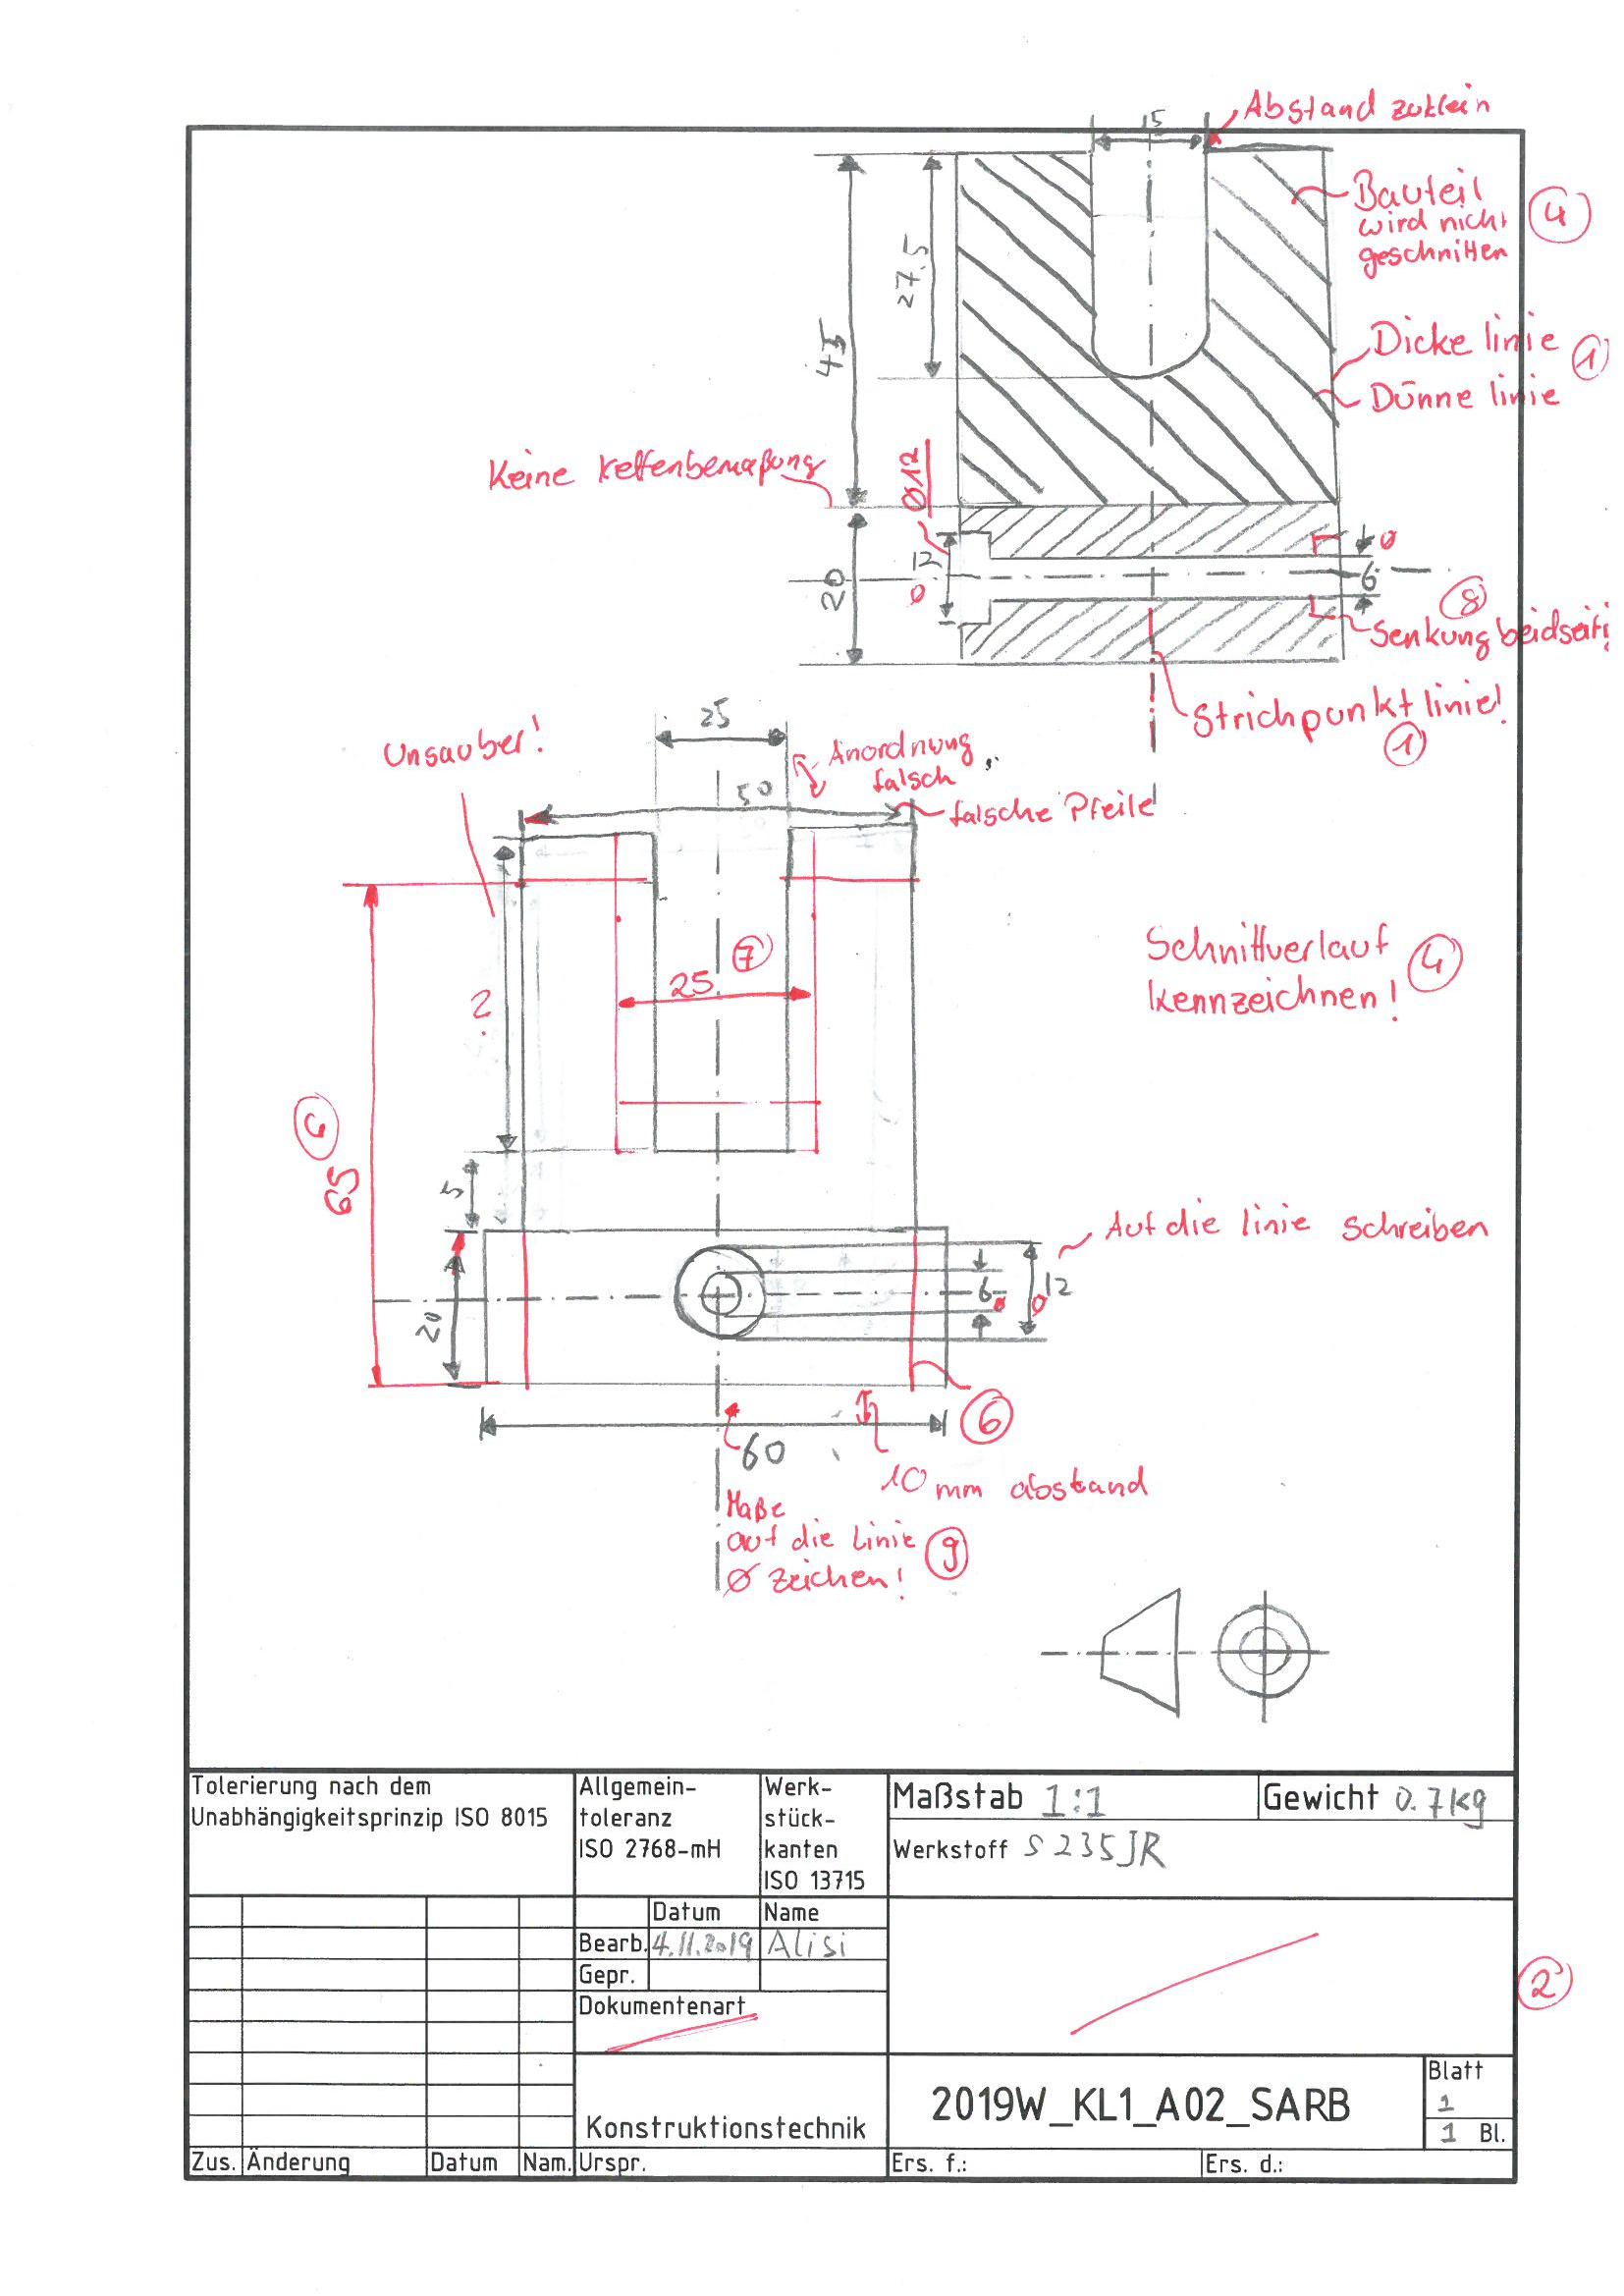 Abstand zuklein
15
Bauteil
wird nicht
geschnitten
4
27,5
45
Dicke linie
Dünne linie
1
Keine Kettenbemaßung
Ø12
12
Ø
20
Ø
6
8
Senkung beidseitig
Strichpunkt linie!
1
25
Unsauber!
Anordnung
falsch
50
falsche Pfeile
Schnittverlauf
kennzeichnen!
4
25
7
?
6
65
5
Auf die linie schreiben
20
6
Ø
Ø
12
6
60
10 mm abstand
Maße
auf die Linie
Ø zeichen!
9
Tolerierung nach dem
Unabhängigkeitsprinzip ISO 8015
Allgemein-
toleranz
ISO 2768-mH
Werk-
stück-
kanten
ISO 13715
Maßstab 1:1
Gewicht 0.7kg
Werkstoff S235JR
Datum Name
Bearb. 4.11.2019 Alisi
Gepr.
Dokumentenart
2
Konstruktionstechnik
2019W_KL1_A02_SARB
Blatt
1
1 Bl.
Zus. Änderung Datum Nam. Urspr. Ers. f.: Ers. d.: